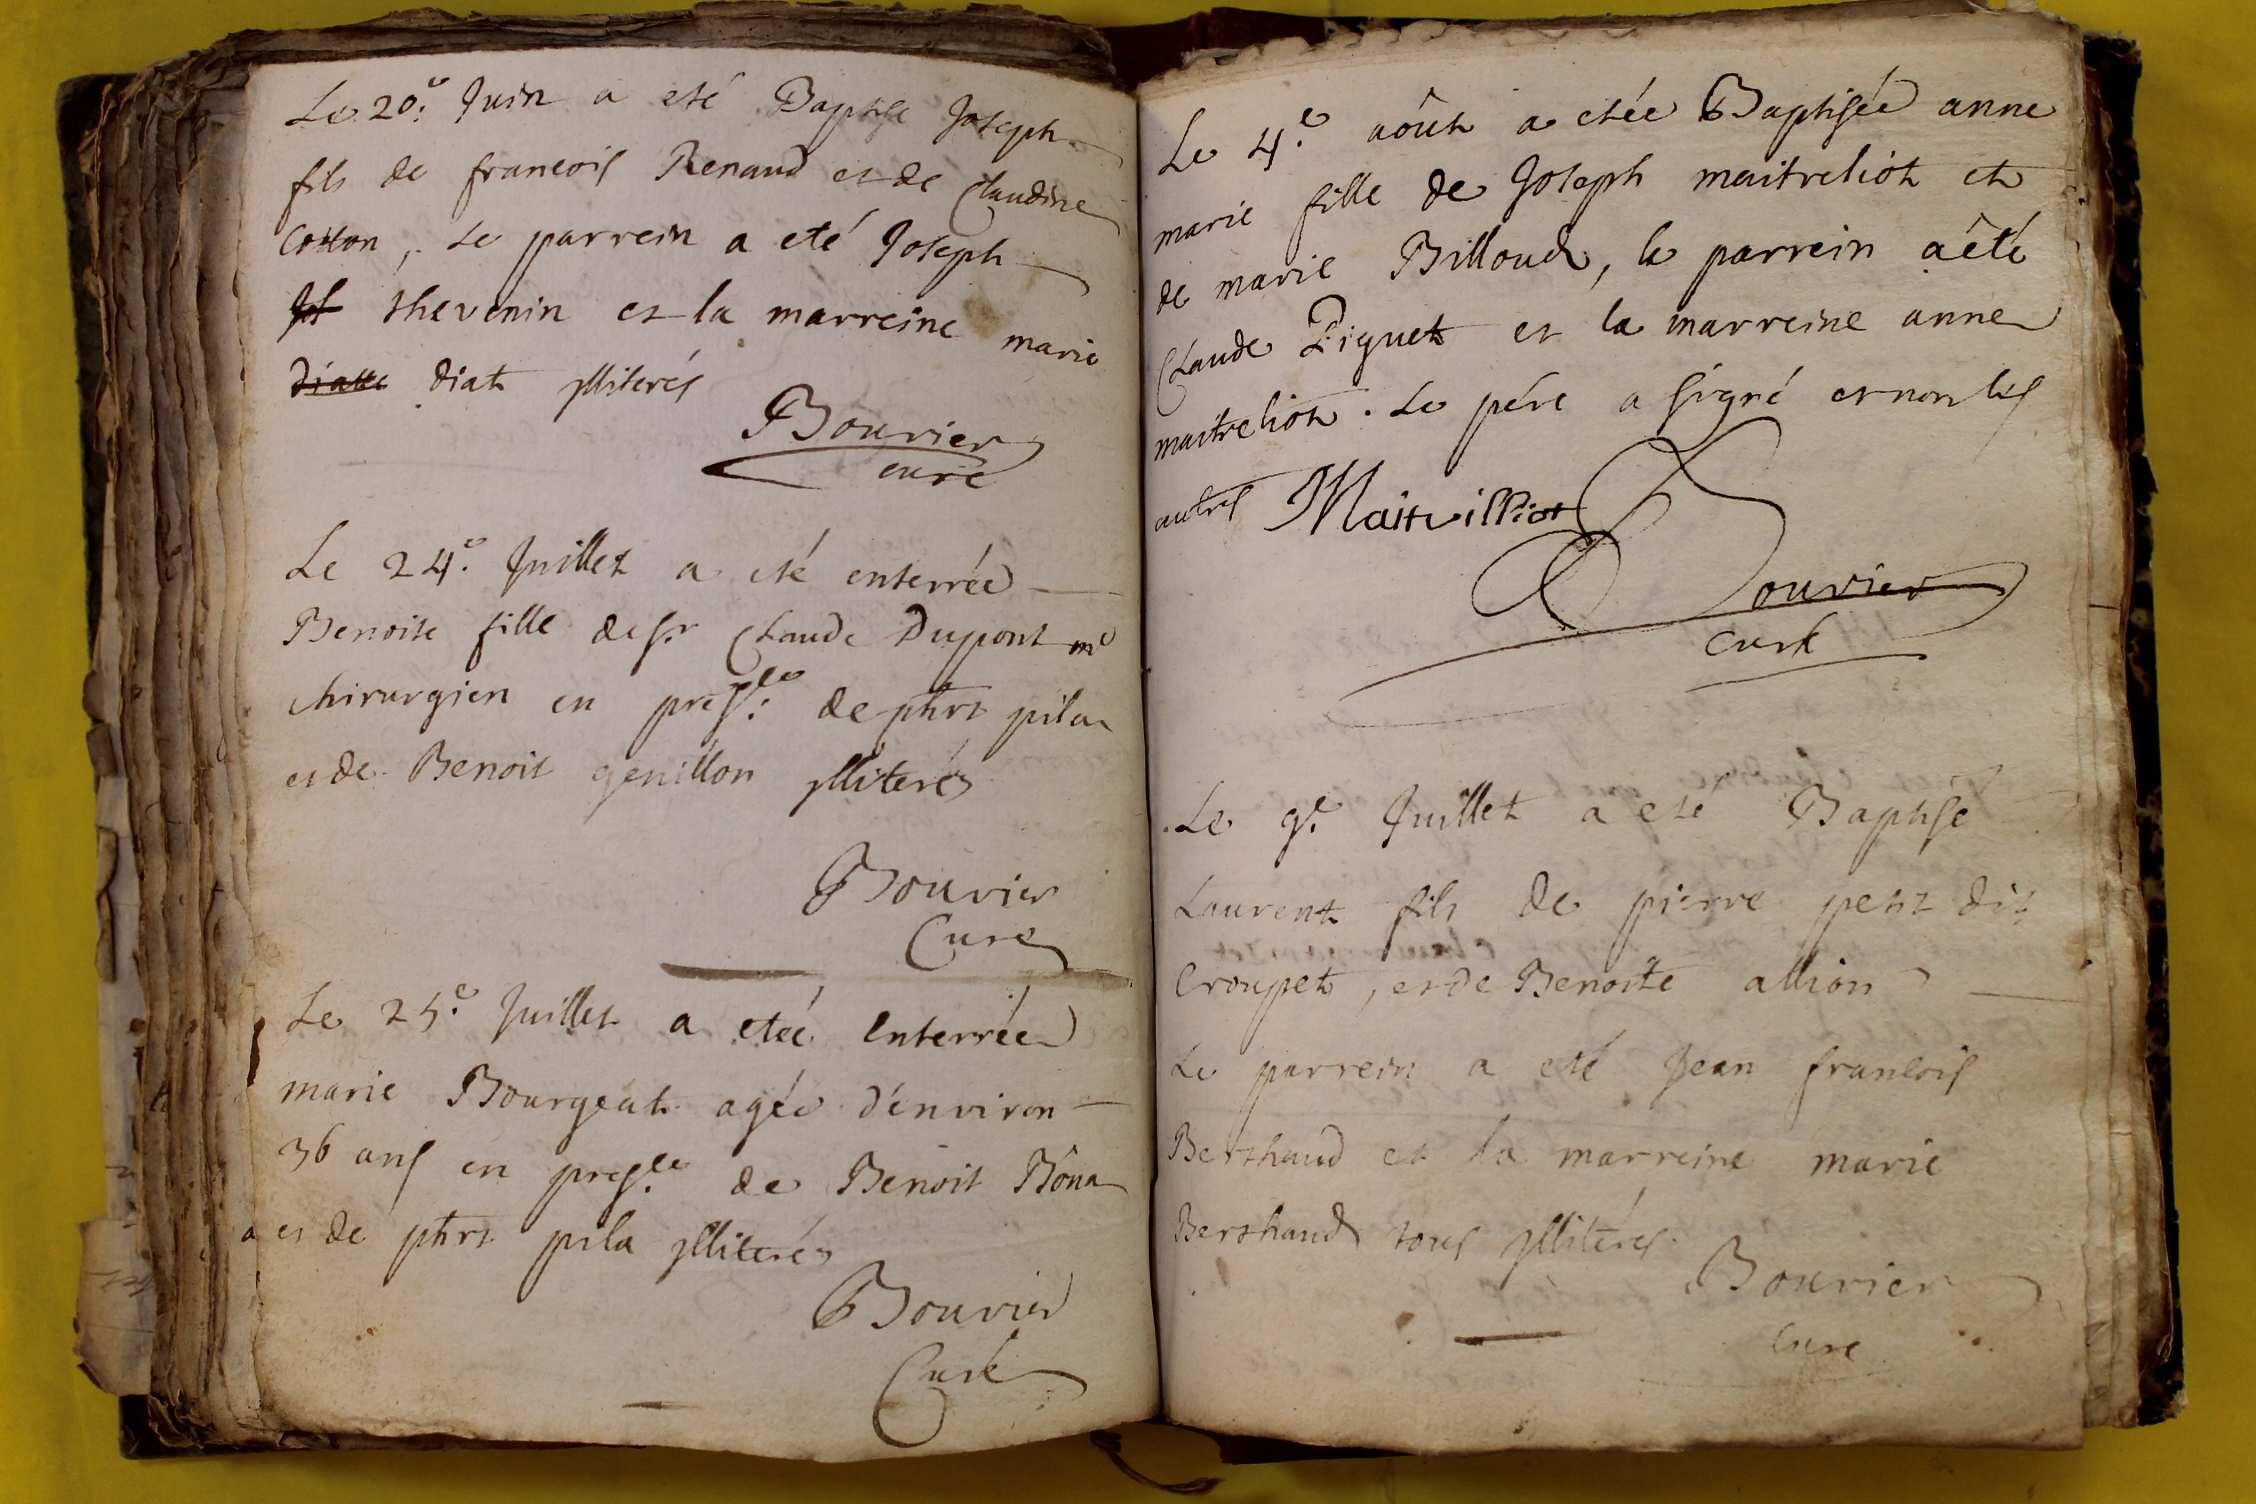 Le 20.e Juin a eté Baptisé Joseph
fils de francois Renaud et de Claudine
Cotton, Le parrein a eté Joseph
thevenin et la marreine marie
diatte diat jlliterés
Bouvier
curé
Le 24.e Juillet a eté enterrée
Benoite fille de sr. Claude Dupont me
chirurgien en presce. de phrt pila
et de Benoit genillon jlliterés
Bouvier
Curé
Le 25.e Juillet a eteé enterrée
marie Bourgeat agée d'environ
36 ans en presce. de Benoit Bôna
et de phrt pila jlliterés
Bouvier
Curé
Le 4.e aôut a etée Baptisée anne
marie fille de Joseph maitreliot et
de marie Billoud, le parrein a êté
Claude Piguet et la marreine anne
maitreliot. Le pére a signé et non les
autres Maitrilliot
Bouvier
curé
Le 9.e Juillet a eté Baptisé
Laurent fils de pierre petit dit
Croupet, et de Benoite allion
Le parrein a eté Jean francois
Berthaud et la marreine marie
Berthaud tous jlliterés.
Bouvier
Curé